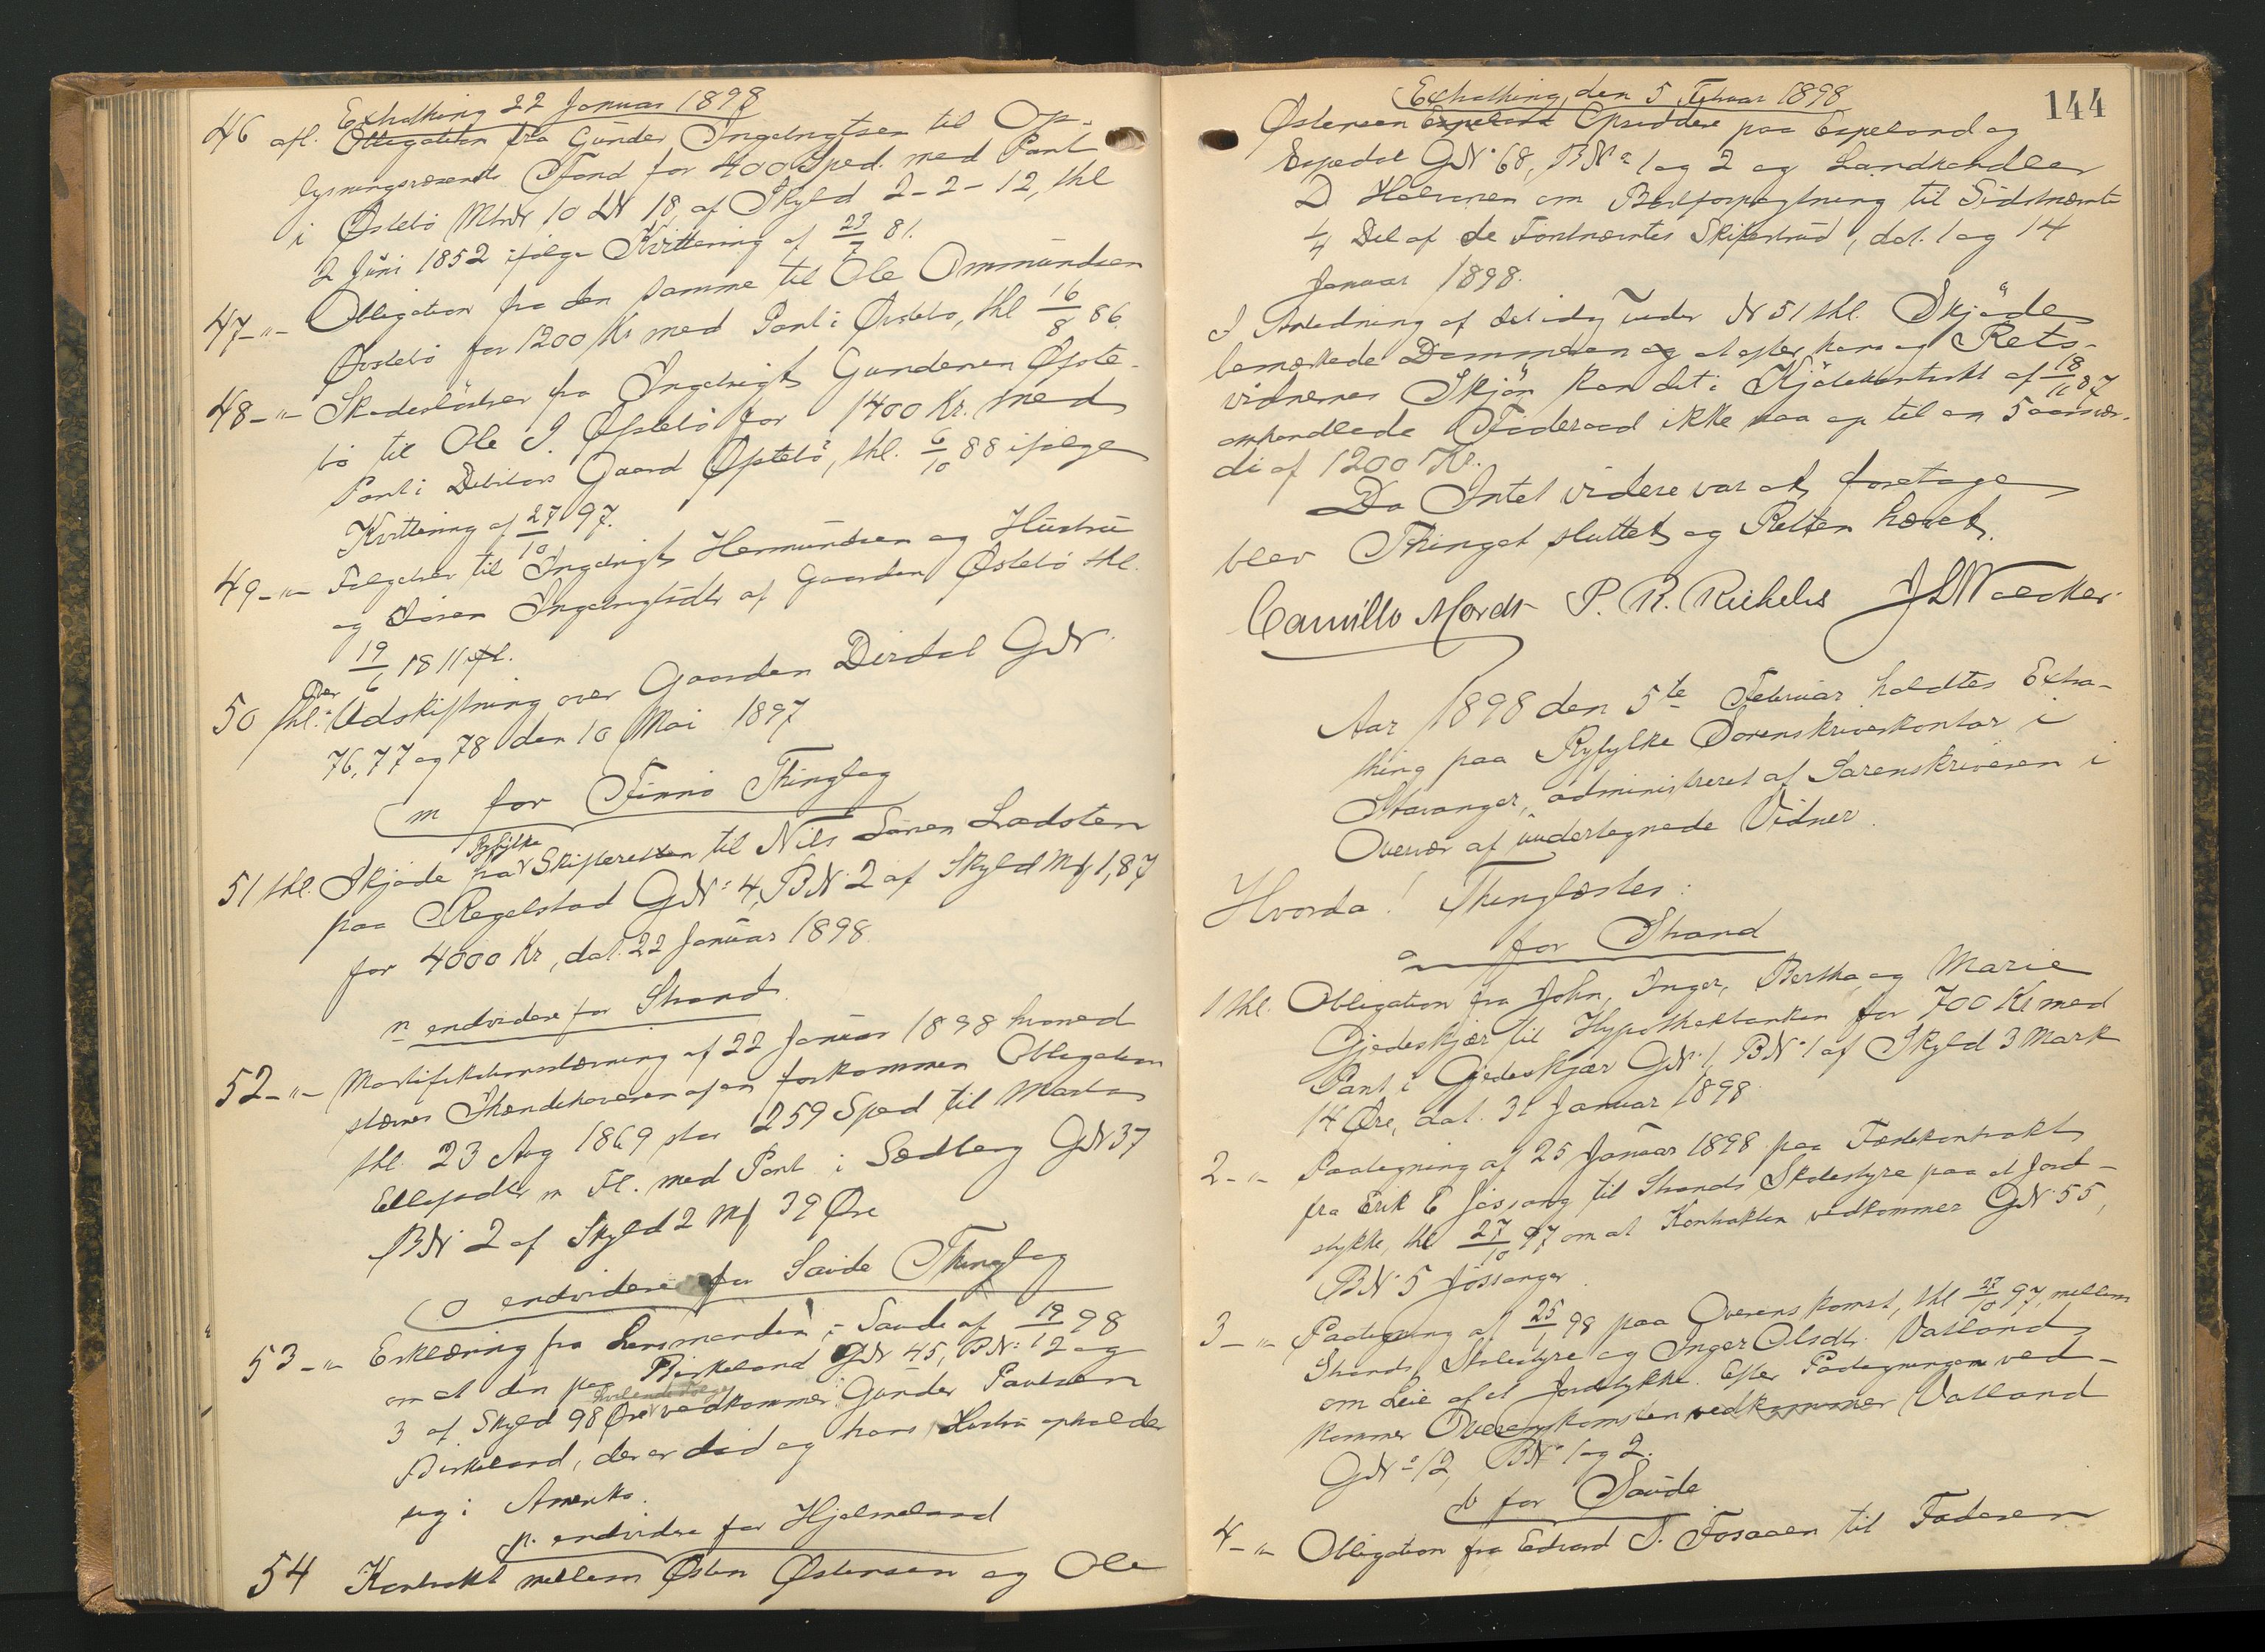 Extrathing 22 Januar 1898
46 afl. Obligation fra Gunder Ingebrigtsen til Op-
lysningsvæsenets Fond for 400 Sped. med Pant
i Østebö MtrN 10 LN 18, af Skyld 2-2-12, thl
2 Juni 1852 ifölge Kvittering af 23/7 81.
47 -"- Obligation fra den samme til Ole Ommundsen
Østebö for 1200 Kr med Pant i Østebö, thl 16/8 86.
48 -"- Skadeslösbrev fra Ingebrigt Gundersen Øfste-
bö til Ole I. Øfstebö for 1400 Kr. med
Pant i Debitors Gaard Øfstebö, thl. 6/10 88 ifölge
Kvittering af 27/10 97.
49 -"- Fölgebrev til Ingebrigt Hermundsen og Hustru
og Sören Ingebrigtsdtr af Gaarden Østebö thl.
19/6 1811 afl.
50 thl. Udskiftning over Gaarden Dirdal GN
76, 77 og 78 den 10 Mai 1897
m for Finnö Thinglag
51 thl. Skjöde fra Ryfylke Skifteretten til Nils Sören Ladsten
paa Regelstad GN: 4, BN: 2 af Skyld Mk 1,87
for 4000 Kr, dat. 22 Januar 1898.
n endvidere for Strand.
52 -"- Mortifikationsstævning af 22 Januar 1898 hvorved
stævnes Ihændehaveren af en forkommen Obligation
thl. 23 Aug 1869 stor 259 Sped til Marta
Ellefsdtr m Fl. med Pant i Sedberg GN 37
BN: 2 af Skyld 2 Mk 39 Øre
o endvidere for Saude Thinglag
53 -"- Erklæring fra Lensmanden i Saude af 19/1 98
om at den paa Birkeland GN 45, BN: 2 og
3 af Skyld 98 Øre vedkommer Gunder Paulsen
Birkeland, der er död og hans Hustru opholder
sig i Amerika.
p. endvidere for Hjelmeland
54 Kontrakt mellem Østen Østensen og Ole
Extrathing den 5 Februar 1898
144
Østensen Espeland Opsiddere paa Espeland og
Espedal GN: 68, BN: 1 og 2 og Landhandler
D Halvorsen om Bortforpagtning til Sidstnævnte
1/4 Del af de Förstnævntes Skiferbrud, dat. 1 og 14
Januar 1898.
I Anledning af det idag under N 51 thl. Skjöde
bemærkede Dommeren og at efter hans og Rets-
vidnernes Skjön kan det i Kjöbekontrakt af 18/11 87
omhandlede Föderaad ikke naa op til en 5 aarsvær-
di af 1200 Kr.
Da Intet videre var at foretage
blev Thinget sluttet og Retten hævet.
Camillo Mordt P. R. Rickels
Aar 1898 den 5te Februar holdtes Extra-
thing paa Ryfylke Sorenskriverkontor i
Stavanger, administreret af Sorenskriveren i
Overvær af undertegnede Vidner.
Hvorda! Thinglæstes:
a for Strand
1 thl. Obligation fra John, Inger, Bertha og Marie
Gjedeskjær til Hypothekbanken for 700 Kr med
Pant i Gjedeskjær GN: 1, BN: 1 af Skyld 3 Mark
14 Øre, dat. 31 Januar 1898.
2 -"- Paategning af 25 Januar 1898 paa Fæstekontrakt
fra Erik E Jössang til Strands Skolestyre paa et Jord-
stykke, thl 27/10 97 om at Kontrakten vedkommer GN: 55,
BN: 5 Jössanger.
3 -"- Paategning af 25/1 98 paa Overenskomst, thl 27/10 97, mellem
Strands Skolestyre og Inger Olsdtr. Vatland
om Leie af et Jordstykke. Efter Paategningen ved-
kommer Overenskomsten vedkommer Vatland
GN: 12, BN: 1 og 2.
b for Saude
4 -"- Obligation fra Edvard S. Fosaaen til Faderen